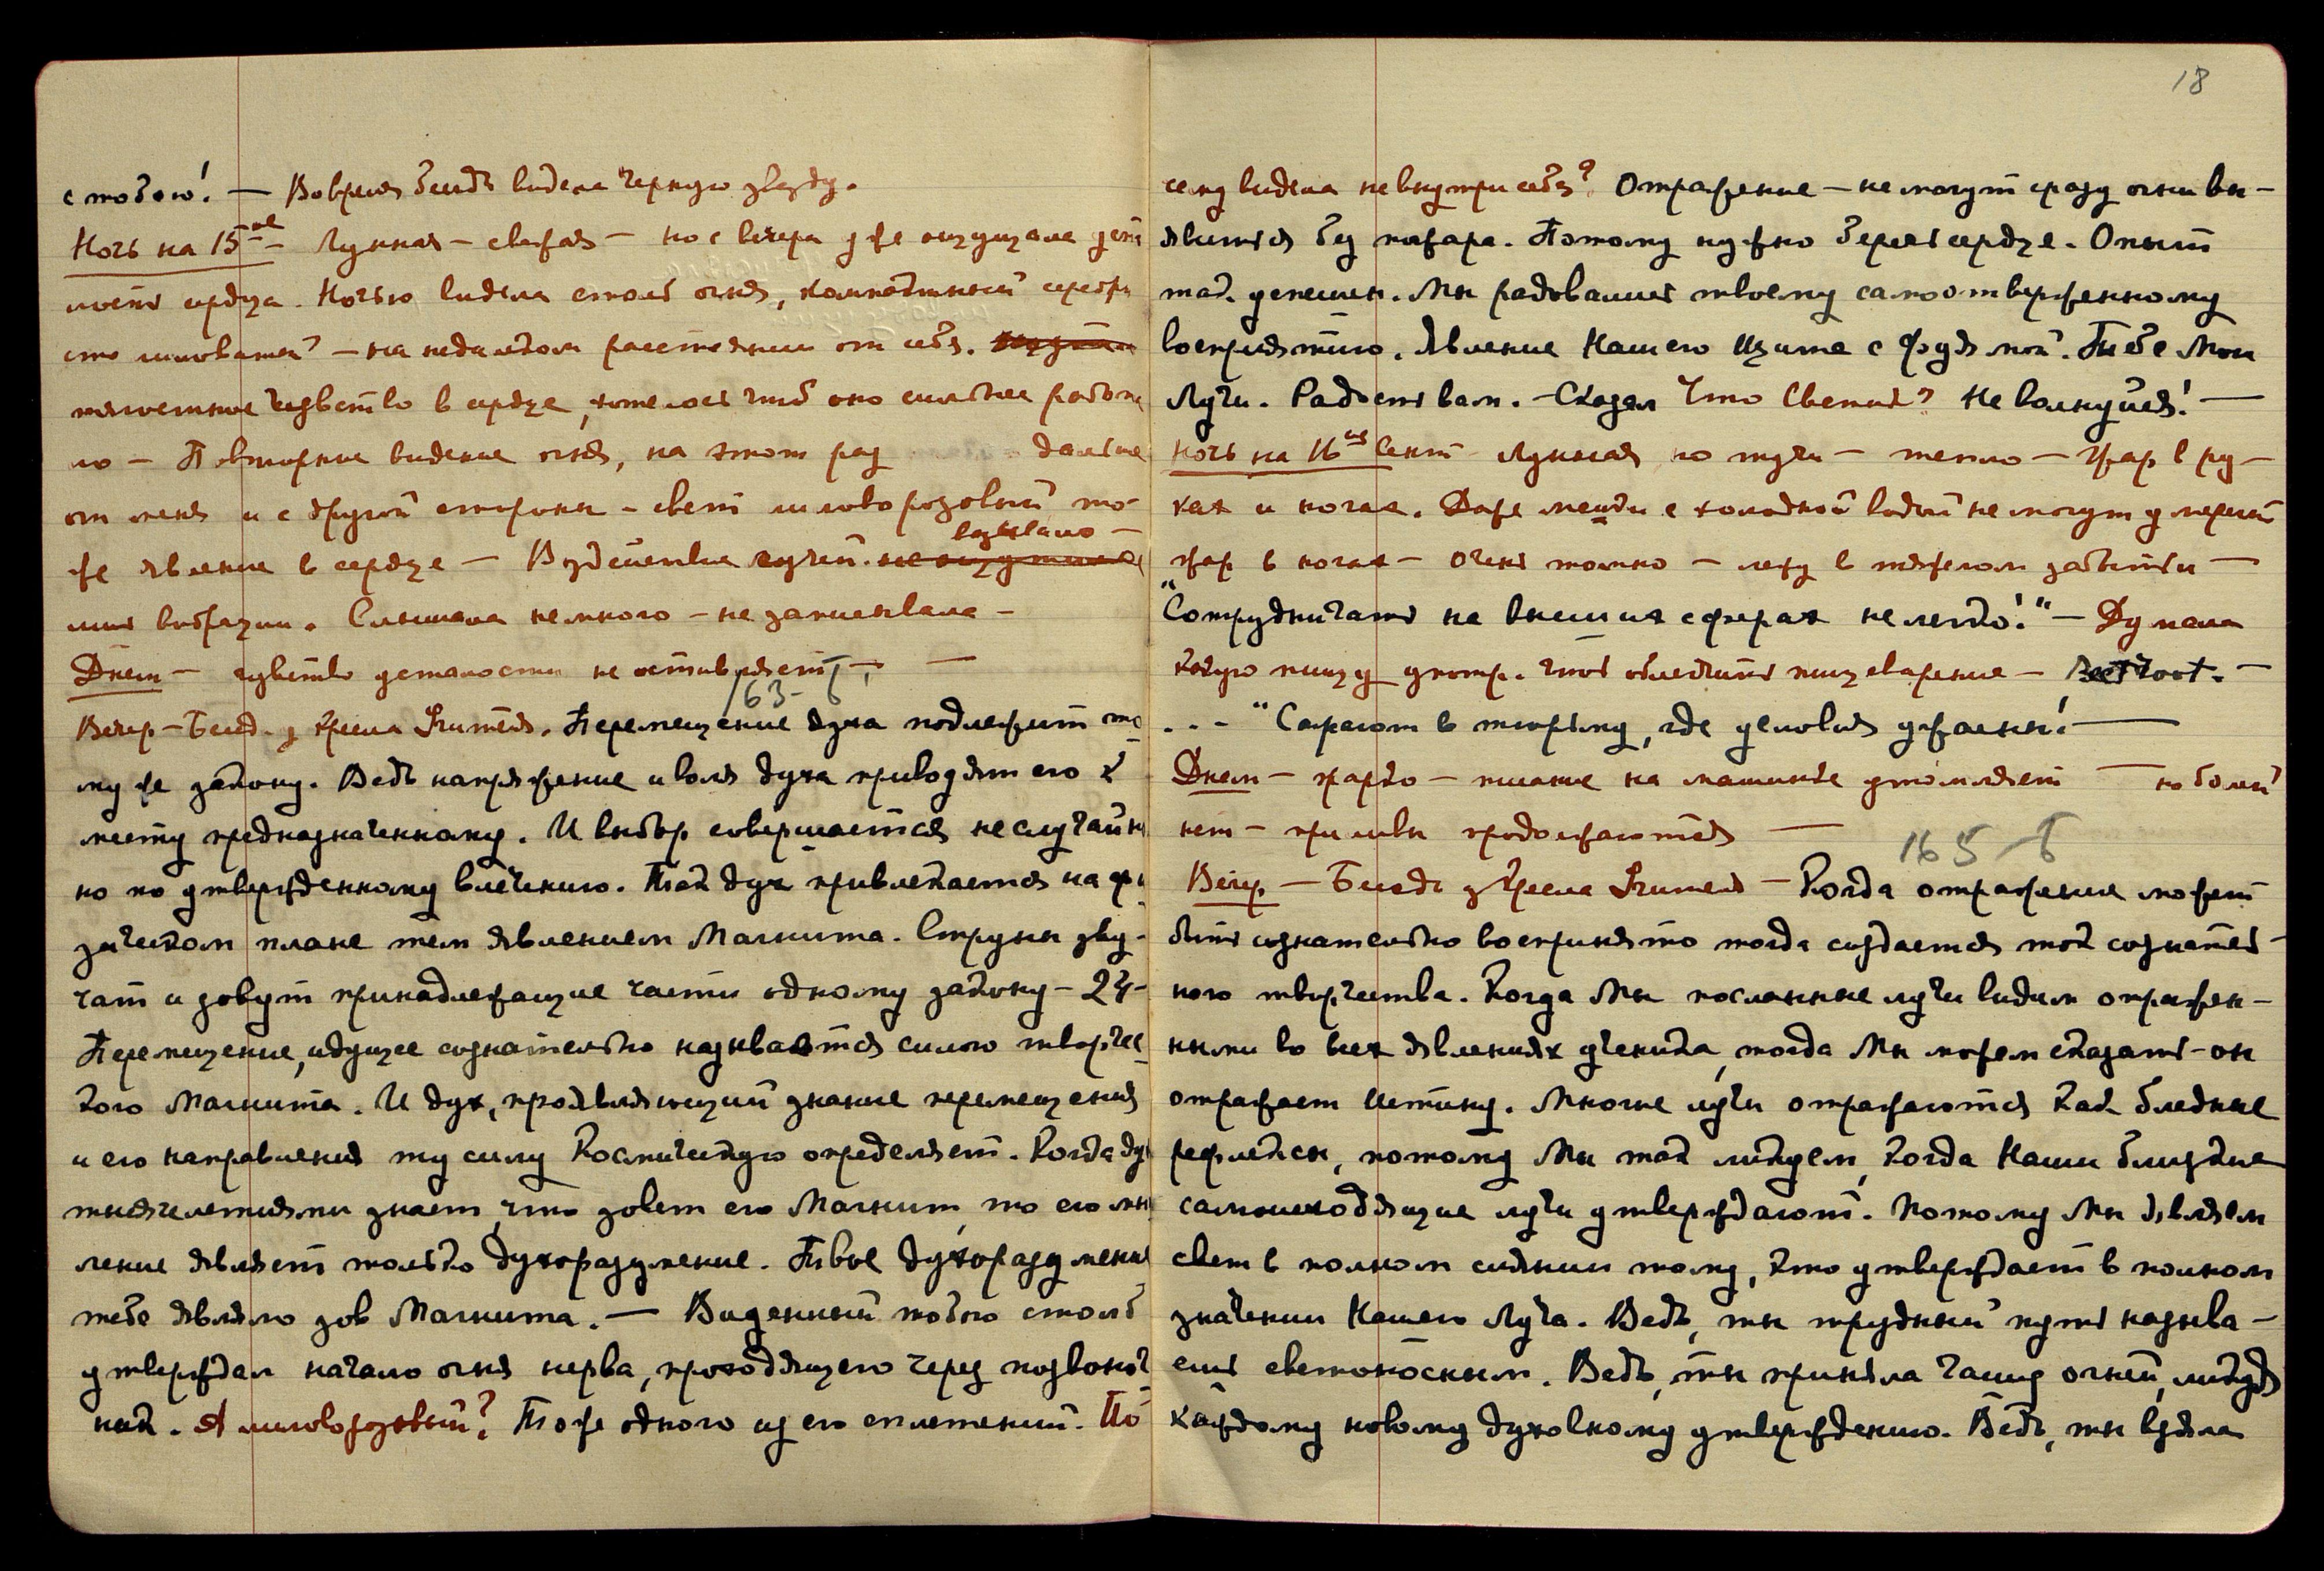 с тобою! — Во время бесед видела черную звезду.
Ночь на 15-ое Лунная – свежая – но с вечера уже ощущала
моего сердца. Ночью видела столб огня, компактный серебри
сто лиловатый – на недалеком расстоянии от себя.
тягостное чувство в сердце, хотелось чтоб оно сильнее работа
ло – Повторное видение огня, на этот раз дальше
от меня и с другой стороны – свет лилово розовый то
вызвало –
же явление в сердце – Воздействие лучей не ощутила
мне вибрации. Слышала немного – не записывала –
Днем – чувство усталости не оставляет – —
163-б
Вечер – Бесед. у кресла Учителя. Перемещение духа подлежит то
му же закону. Ведь напряжение и воля духа приводят его к
месту предназначенному. И выбор совершается не случайн
но по утвержденному влечению. Так дух привлекается на фи
зическом плане тем явлением Магнита. Струны зву-
чат и зовут принадлежащие части одному закону – 24 –
Перемещение, идущее сознательно называется силою творчес
кого Магнита. И дух, проявляющий знание перемещения
и его направления ту силу Космическую определяет. Когда ду
тысячелетиями знает, что зовет его Магнит, то его мы
ление являет только духоразумение. Твое духоразумение
тебе являло зов Магнита. — Виденный тобою столб
утверждал начало огня нерва, проходящего через позвоноч
ник. А лиловорозовый? Тоже одного из его сплетений. По
18
чему видела не внутри себя? Отражение – не могут сразу огни вы-
явиться без пожара. Потому нужно беречь сердце. Опыт
так. успешен. Мы радовались твоему самоотверженному
восприятию. Явление Нашего Щита с Фудямой. Тебе Мои
Лучи. Радость вам. – Сказал Что Светик? Не волнуйся! —
Ночь на 16-ое Сент – Лунная, но тучи – тепло – Жар в ру-
ках и ногах. Даже мешки с холодной водой не могут умерить
жар в ногах – очень томно – лежу в тяжелом забытьи —
"Сотрудничать на высших сферах не легко!" – Думала
какую пищу употр. чтоб облегчить пищеварение – Beetroot. –
. . – "Сажают в тюрьму, где условия ужасны! —
Днем – жарко – писание на машинке утомляет — но болей
нет – приливы продолжаются —
165-б
Вечер – Беседа у Кресла Учителя – Когда отражение может
быть сознательно воспринято тогда создается ток сознатель-
ного творчества. Когда Мы посланные лучи видим отражен-
ными во всех явлениях ученика, тогда Мы можем сказать – он
отражает Истину. Многие лучи отражаются как бледные
рефлексы, потому Мы так ликуем, когда Наши близкие
самоисходящие лучи утверждают. Потому Мы являем
свет в полном сиянии тому, кто утверждает в полном
значении Нашего Луча. Ведь, ты трудный путь называ-
ешь светоносным. Ведь, ты приняла чашу огней, ликуя
каждому новому духовному утверждению. Ведь, ты взяла